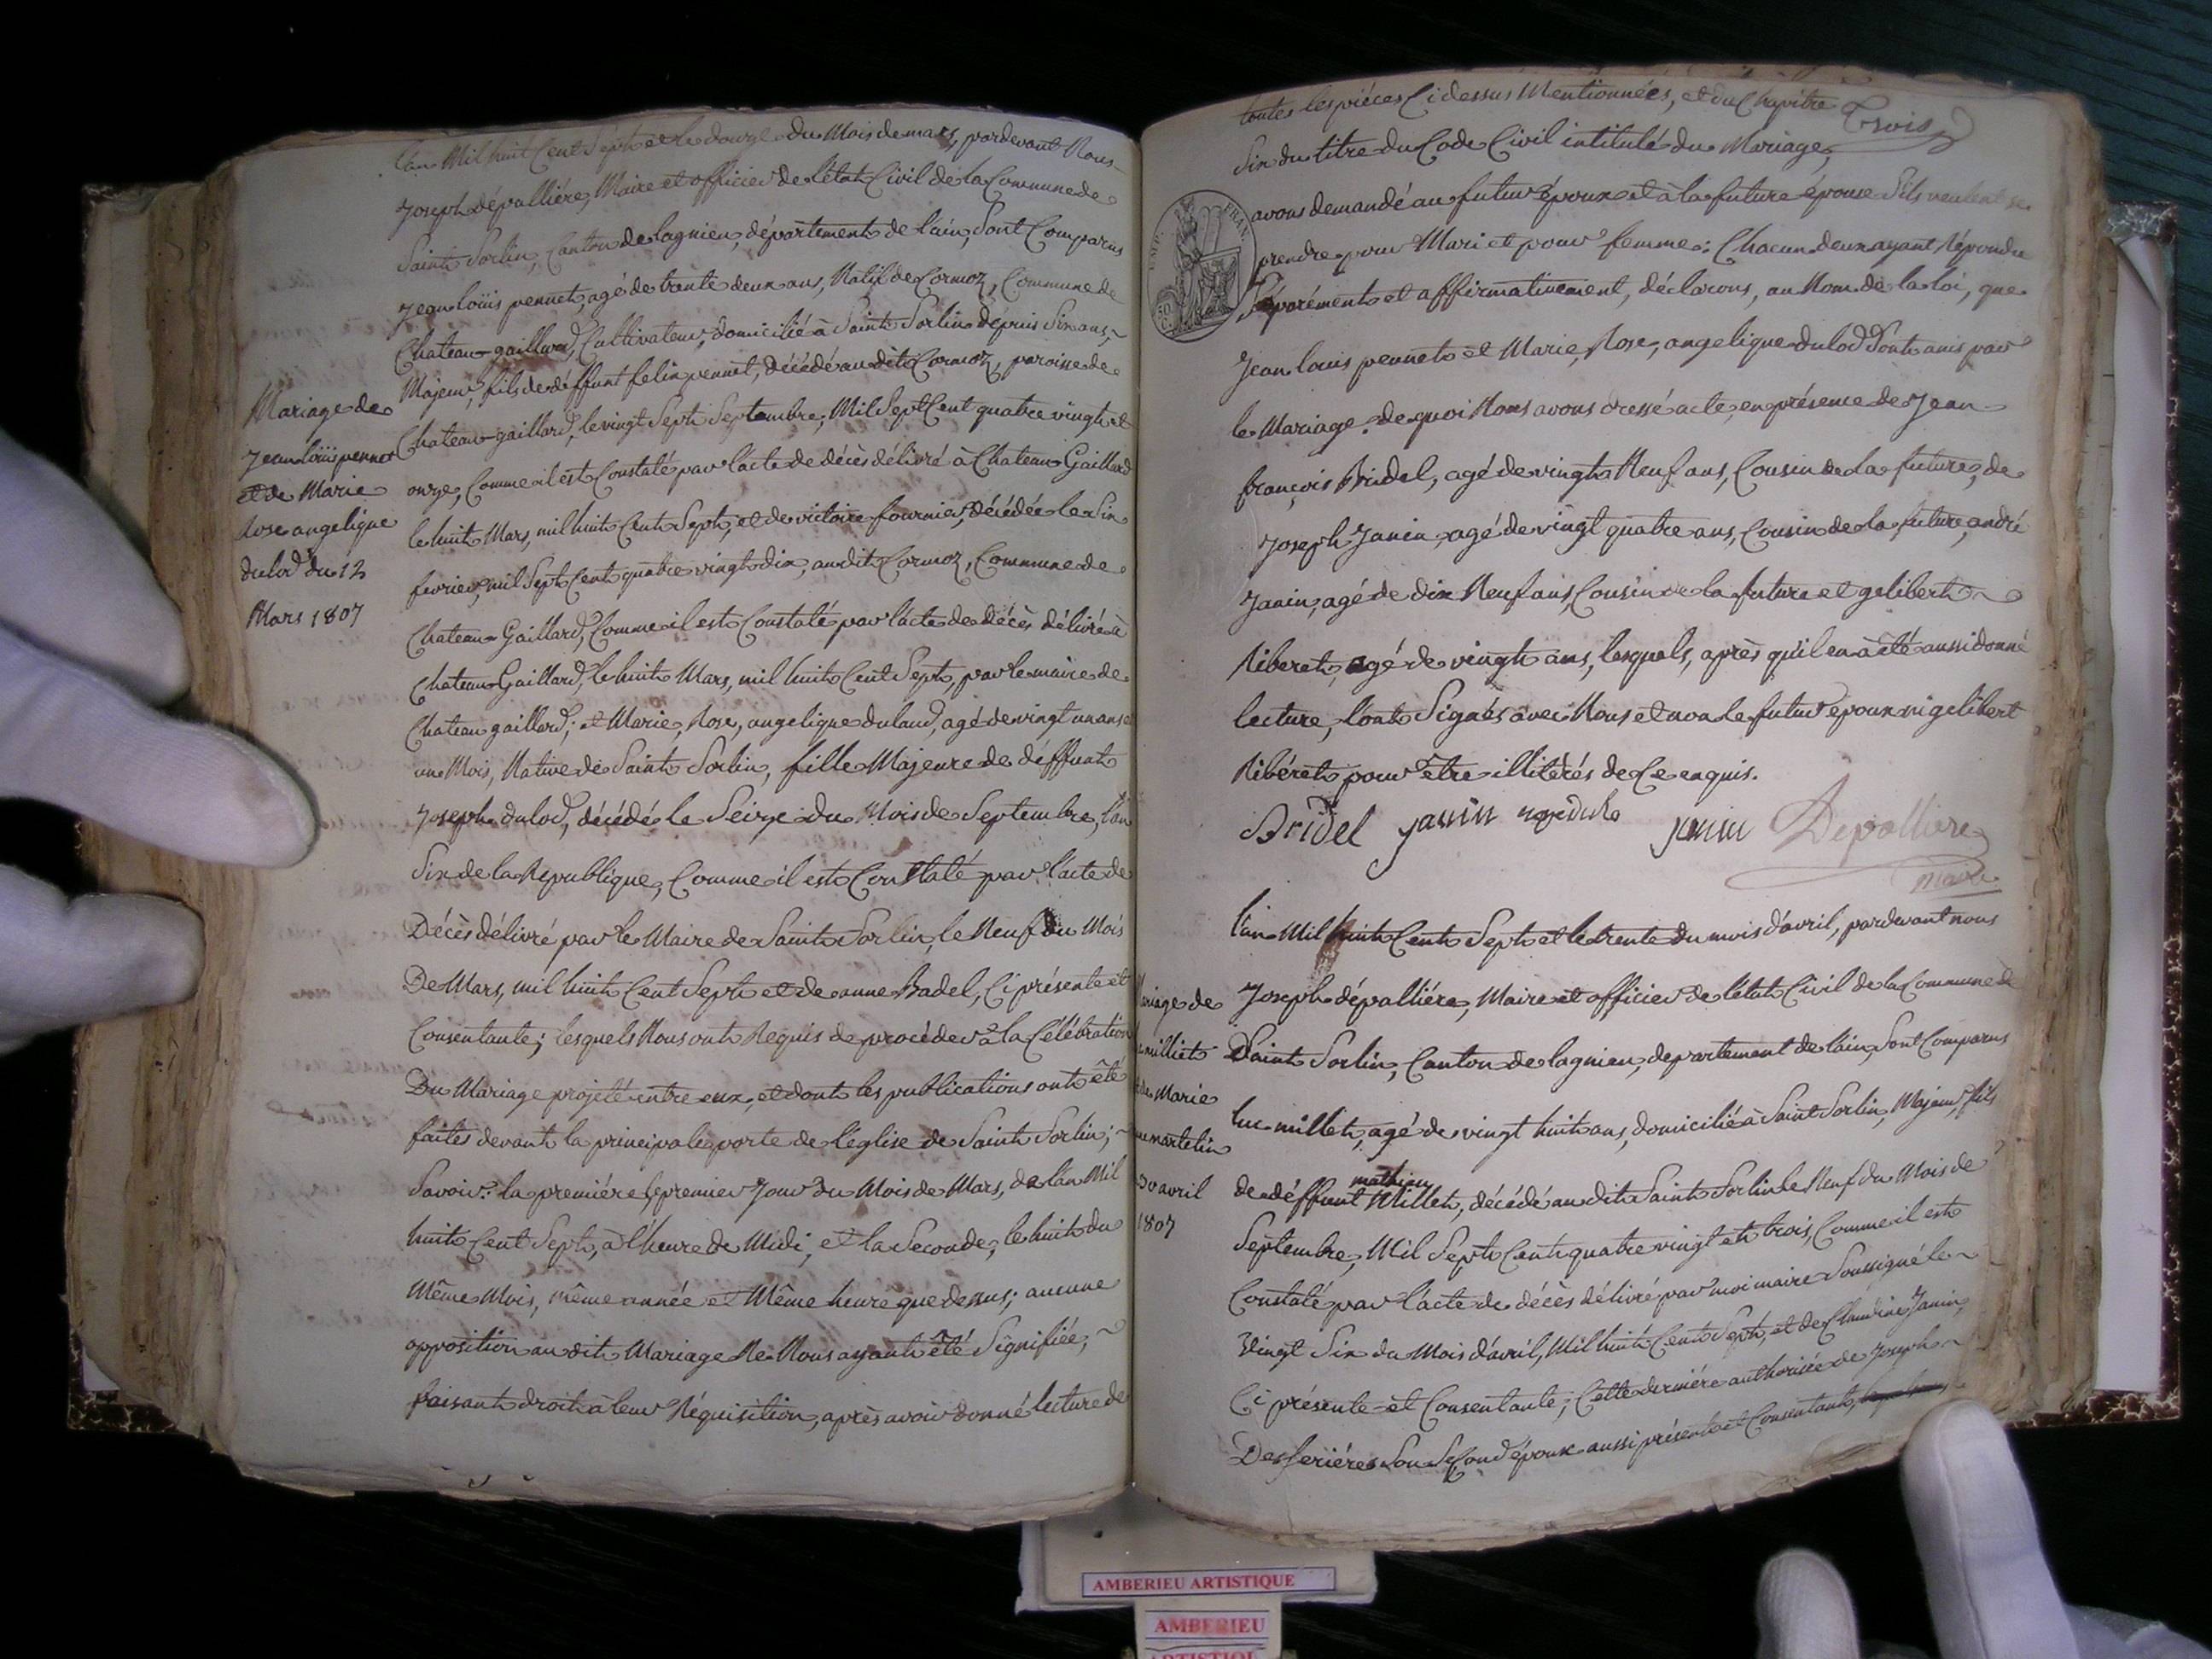 L'an Mil huit Cent Sept et le douze du Mois de mars, pardevant Nous
Joseph dépalliére, Maire et officier de l'état Civil de la Commune de
Saint Sorlin, Canton de lagnieu, département de l'ain, Sont Comparus
Jean loüis pennet, agé de trente deux ans, Natif de Cormoz, Commune de
Chateau-gaillard, Cultivateur, domicilié à Saint Sorlin depuis Six ans,
Majeur, fils de déffunt felix pennet, décédé au dit Cormoz, paroisse de
Mariage de
Jean loüis pennet
et de Marie
Rose angelique
dulod du 12
Mars 1807
Chateau-gaillard, le vingt Sept Septembre, Mil Sept Cent quatre vingt et
onze, Comme il est Constaté par l'acte de décès délivré à Chateau Gaillard
le huit Mars, mil huit Cent Sept, et de victoire fournier, décédée le Six
fevrier, mil Sept Cent quatre vingt dix, au dit Cormoz, Commune de
Chateau Gaillard, Comme il est Constaté par l'acte de décès délivré à
Chateau Gaillard, le huit Mars, mil huit Cent Sept, par le maire de
Chateau gaillard; et Marie, Rose, angelique dulaud, agé de vingt un ans et
un Mois, Native de Saint Sorlin, fille Majeure de déffunt
Joseph dulod, décédé le Seize du Mois de Septembre, l'an
Six de la Republique, Comme il est Constaté par l'acte de
Décès délivré par le Maire de Saint Sorlin, le Neuf du Mois
De Mars, mil huit Cent Sept et de anne Badel, Ci présente et
Consentante; lesquels Nous ont Requis de procéder à la Célébration
Du Mariage projeté entre eux, et dont les publications ont êté
faites devant la principale porte de l'église de Saint Sorlin;
Savoir: la premiére le premier Jour du Mois de Mars, de l'an Mil
huit Cent Sept, à l'heure de Midi, et la Seconde, le huit du
Même Mois, même année et Même heure que dessus; aucune
opposition au dit Mariage Ne Nous ayant êté Signifiée,
faisant droit à leur Réquisition, après avoir donné lecture de
toutes les piéces Ci dessus Mentionnées, et du Chapitre
Trois
Six du titre du Code Civil intitulé du Mariage,
EMP. FRAN.
50 C.
avons demandé au futur époux et à la future épouse S'ils veulent se
prendre pour Mari et pour femme: Chacun deux ayant Répondu
Séparément et affirmativement, déclarons, au Nom de la loi, que
Jean louis pennet et Marie, Rose, angelique dulod Sont unis par
le Mariage. de quoi Nous avons dressé acte, en présence de Jean
françois Bridel, agé de vingt Neuf ans, Cousin de la future, de
Joseph Janin, agé de vingt quatre ans, Cousin de la future, andré
Janin, agé de dix Neuf ans, Cousin de la future et gelibert
Riberet, agé de vingt ans, lesquels, après qu'il en à été aussi donné
lecture, l'ont Signés avec Nous et non le futur époux ni gelibert
Ribéret pour être illitérés de Ce enquis.
Bridel janin janin Depalliere
maire
L'an Mil huit Cent Sept et le trente du mois d'avril, pardevant nous
Mariage de
milliet
et de Marie
martelin
30 avril
1807
Joseph dépalliére, Maire et officier de l'état Civil de la Commune de
Saint Sorlin, Canton de lagnieu, departement de l'ain, Sont Comparus
luc millet, agé de vingt huit ans, domicilié à Saint Sorlin, Majeur, fils
mathieu
de déffunt Millet, décédé au dit Saint Sorlin le Neuf du Mois de
Septembre, Mil Sept Cent quatre vingt et trois, Comme il est
Constaté par l'acte de décès délivré par moi maire Soussigné le
Vingt Six du Mois d'avril, Mil huit Cent Sept, et de Claudine Janin,
Ci présente et Consentante; Cette derniére authorisée de Joseph
Desferiéres Son Second époux aussi présent et Consentant,
AMBERIEU ARTISTIQUE
AMBERIEU
ARTISTIQUE